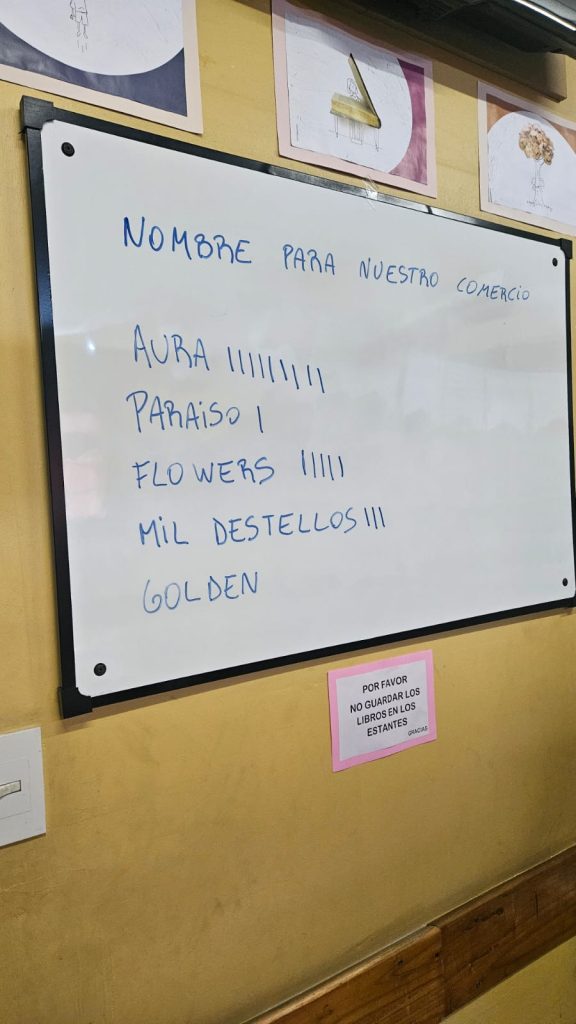 NOMBRE PARA NUESTRO COMERCIO
AURA |||||||||
PARAISO |
FLOWERS |||||
MIL DESTELLOS |||
GOLDEN
POR FAVOR
NO GUARDAR LOS
LIBROS EN LOS
ESTANTES
GRACIAS